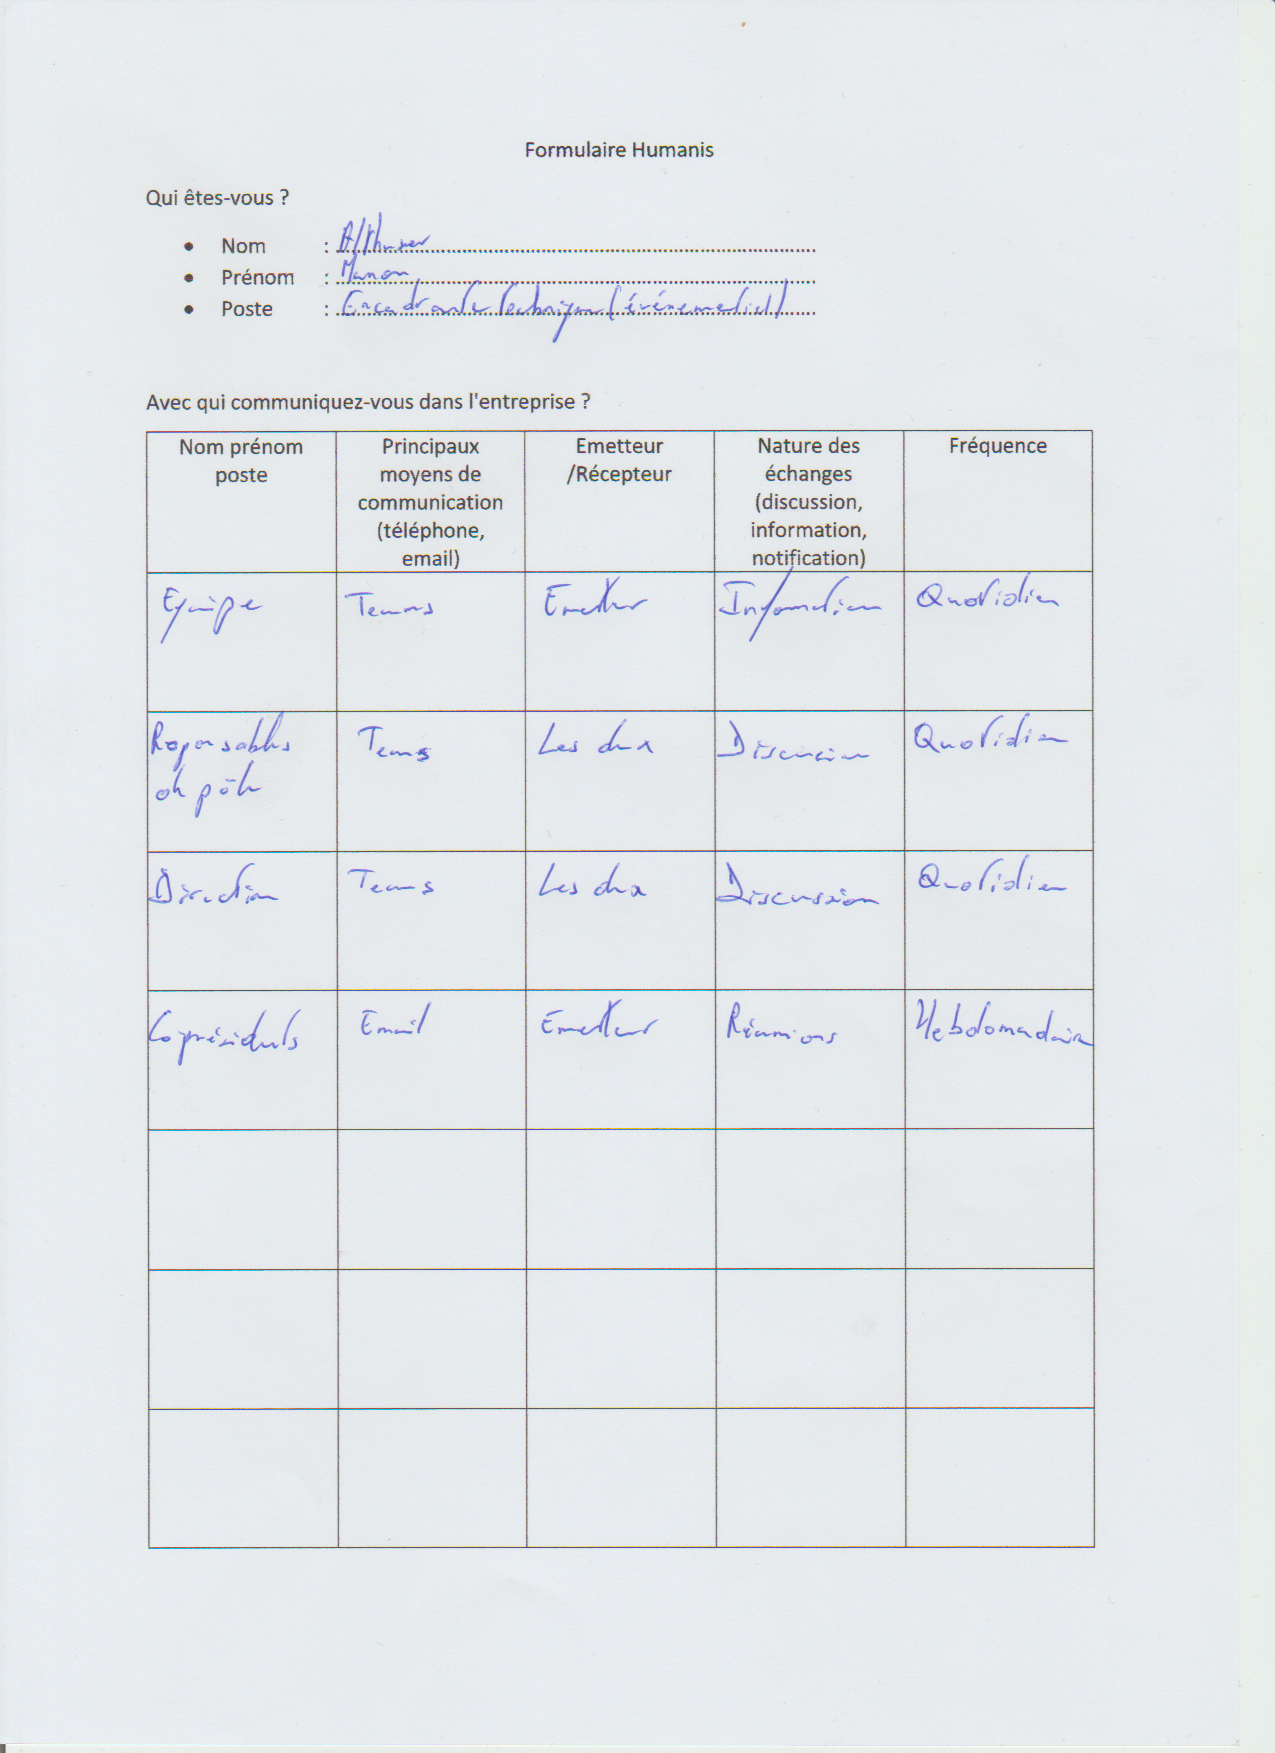 Formulaire Humanis
Qui êtes-vous ?
• Nom : Althuser
• Prénom : Manon
• Poste : Encadrante technique (événementiel)
Avec qui communiquez-vous dans l'entreprise ?
Nom prénom poste
Principaux moyens de communication (téléphone, email)
Emetteur /Récepteur
Nature des échanges (discussion, information, notification)
Fréquence
Equipe Teams Emetteur Information Quotidien
Responsables de pôle Teams Les deux Discussion Quotidien
Direction Teams Les deux Discussion Quotidien
Coprésidents Email Emetteur Réunions Hebdomadaire